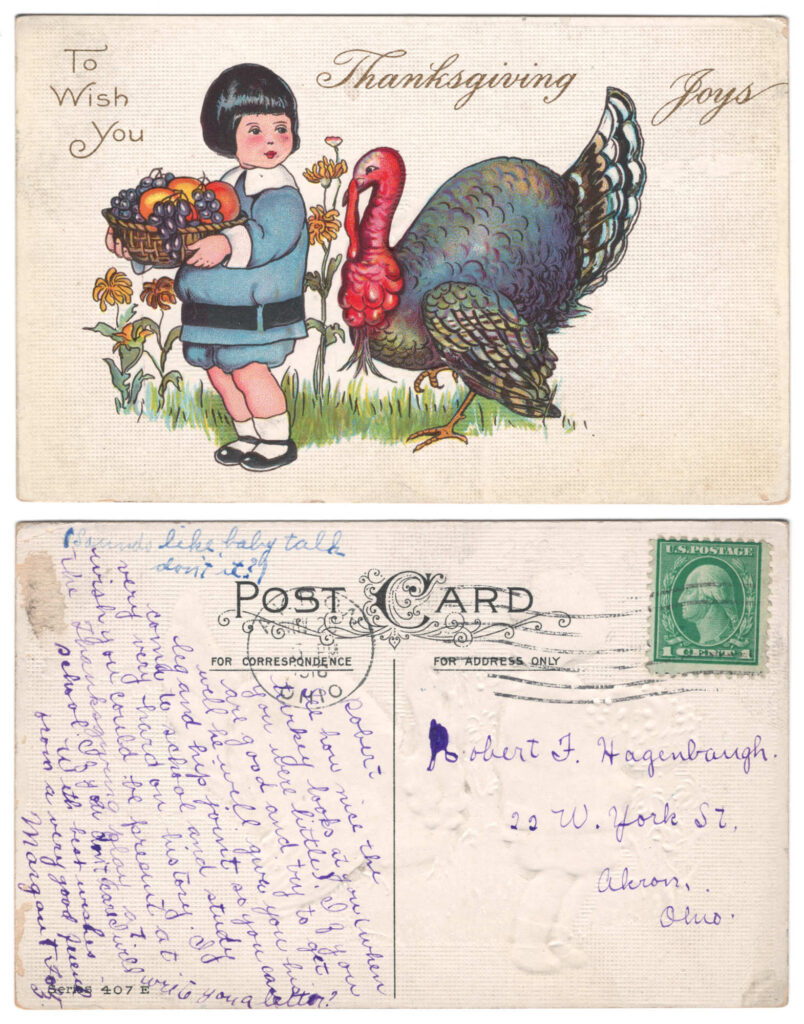 To
Wish
You
Thanksgiving Joys
(Sounds like baby talk
don't it?)
POST CARD
FOR CORRESPONDENCE
FOR ADDRESS ONLY
U.S. POSTAGE
1 CENTS 1
OHIO
Robert
See how nice the
turkey looks at you (when
you were little). If you
are good and try to get
well he will give you his
leg and hip joint so you can
come to school and study
very very hard on history. I
wish you could be present at
the Thanksgiving play at
school. If you don't I will write you a letter?
With best wishes
from a very good friend
Margaret
Robert F. Hagenbaugh.
22 W. York St.
Akron,.
Ohio.
Series 407 E